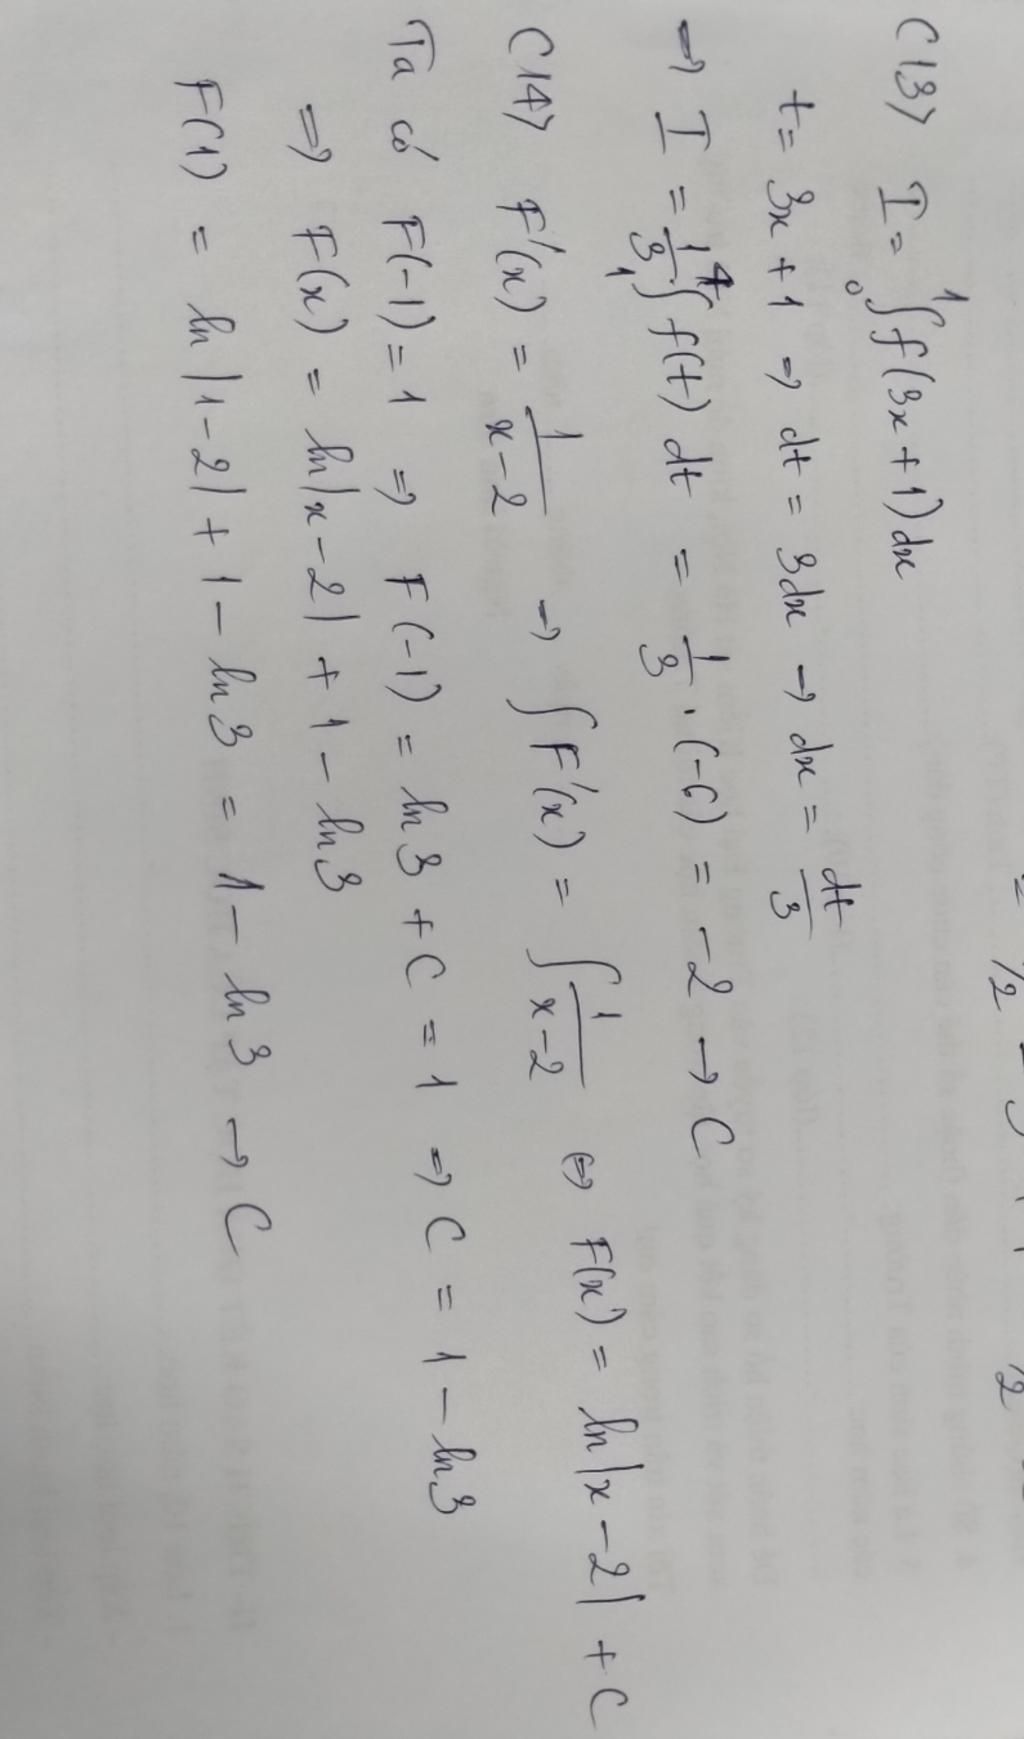 C13> I = ₀∫¹ f(3x + 1) dx
t = 3x + 1 ⇒ dt = 3dx → dx = dt/3
⇒ I = 1/3 ₁∫⁴ f(t) dt = 1/3 . (-6) = -2 → C
C14> F'(x) = 1/(x-2) → ∫ F'(x) = ∫ 1/(x-2) ⇔ F(x) = ln|x - 2| + C
Ta có F(-1) = 1 ⇒ F(-1) = ln3 + C = 1 ⇒ C = 1 - ln3
⇒ F(x) = ln|x - 2| + 1 - ln3
F(1) = ln|1 - 2| + 1 - ln3 = 1 - ln3 → C